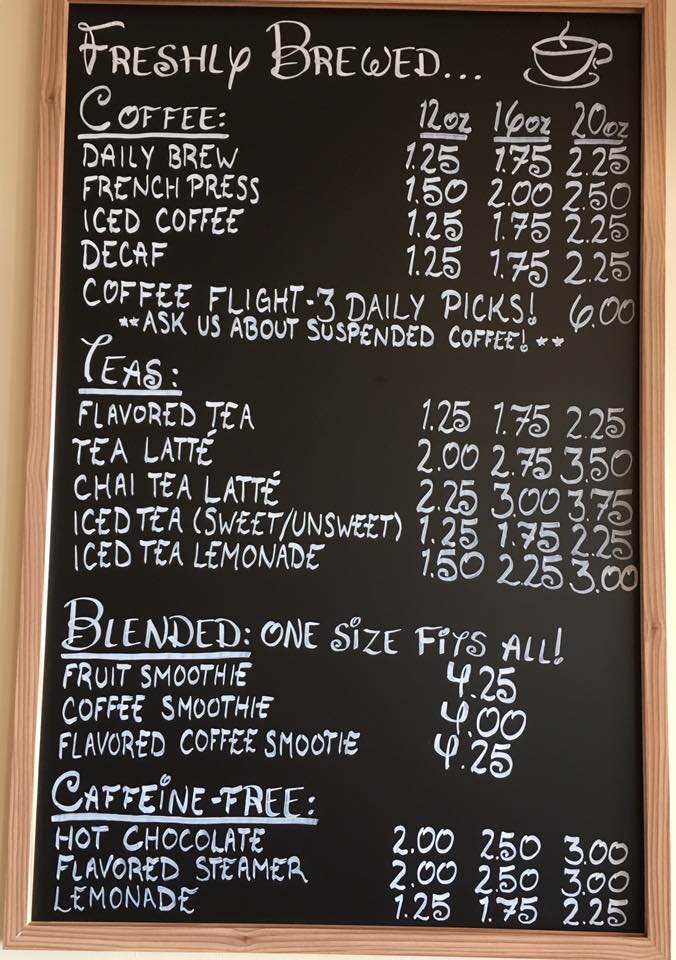 FRESHLY BREWED...
COFFEE: 12oz 16oz 20oz
DAILY BREW 1.25 1.75 2.25
FRENCH PRESS 1.50 2.00 2.50
ICED COFFEE 1.25 1.75 2.25
DECAF 1.25 1.75 2.25
COFFEE FLIGHT-3 DAILY PICKS! 6.00
**ASK US ABOUT SUSPENDED COFFEE!**
TEAS:
FLAVORED TEA 1.25 1.75 2.25
TEA LATTÉ 2.00 2.75 3.50
CHAI TEA LATTÉ 2.25 3.00 3.75
ICED TEA (SWEET/UNSWEET) 1.25 1.75 2.25
ICED TEA LEMONADE 1.50 2.25 3.00
BLENDED: ONE SIZE FITS ALL!
FRUIT SMOOTHIE 4.25
COFFEE SMOOTHIE 4.00
FLAVORED COFFEE SMOOTIE 4.25
CAFFEINE-FREE:
HOT CHOCOLATE 2.00 2.50 3.00
FLAVORED STEAMER 2.00 2.50 3.00
LEMONADE 1.25 1.75 2.25